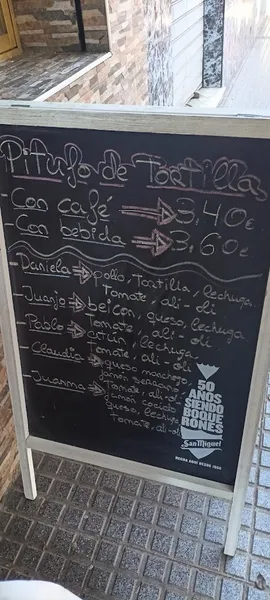 Pitufo de Tortilla
Con café ⇒ 3,40€
- Con bebida ⇒ 3,60€
- Daniela ⇒ pollo, tortilla, lechuga
Tomate, ali-oli
- Juanjo ⇒ beicon, queso, lechuga
Tomate, ali-oli
- Pablo ⇒ atún, lechuga
Tomate, ali-oli
- Claudia ⇒ queso manchego
jamón serrano
Tomate, ali-oli
- Juanma ⇒ jamón cocido
queso, lechuga
Tomate, ali-oli
50
AÑOS
SIENDO
BOQUE
RONES
San Miguel
DESDE AQUÍ DESDE 1966